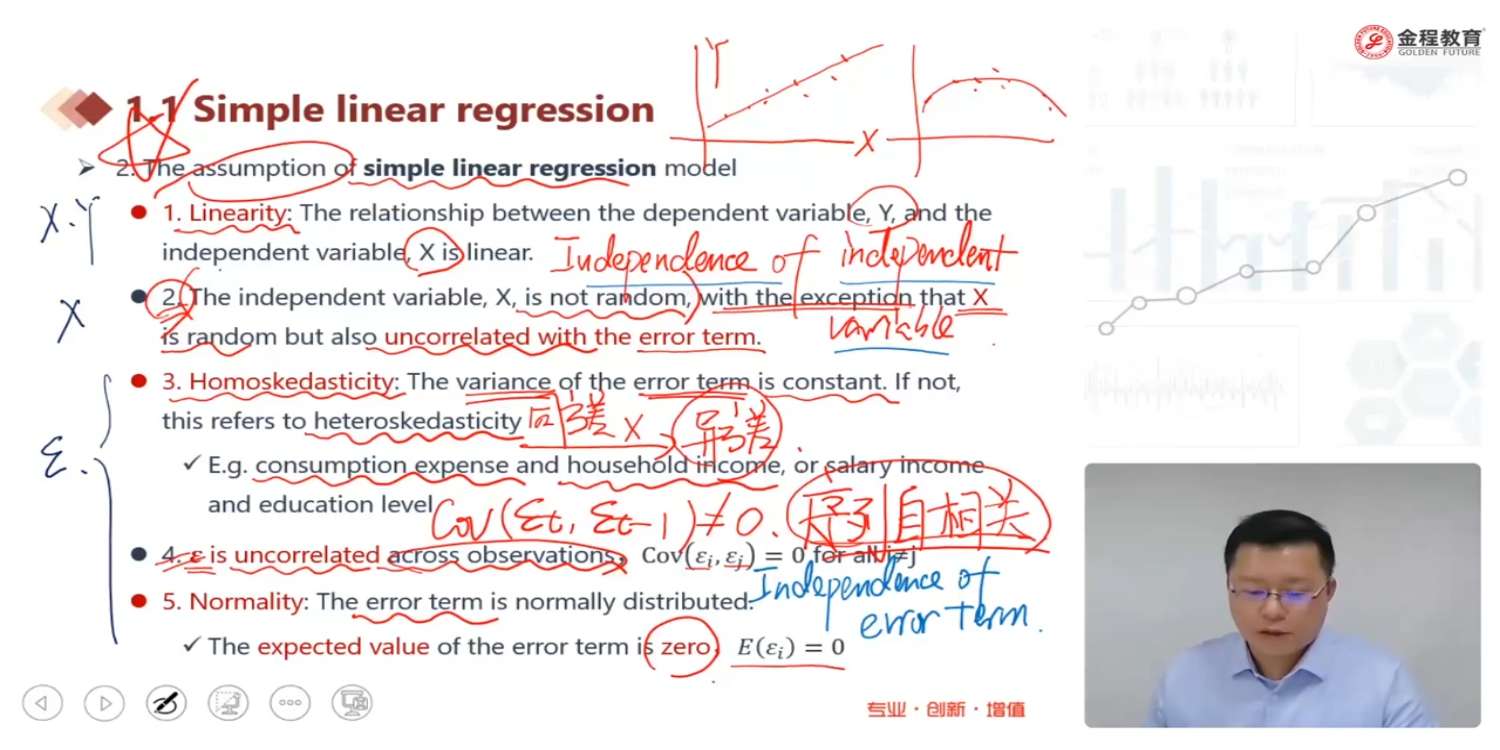 金程教育
GOLDEN FUTURE
1.1 Simple linear regression
Y
X
2. The assumption of simple linear regression model
X. Y
1. Linearity: The relationship between the dependent variable, Y, and the
independent variable, X is linear.
Independence of independent
variable
X
2. The independent variable, X, is not random, with the exception that X
is random but also uncorrelated with the error term.
3. Homoskedasticity: The variance of the error term is constant. If not,
this refers to heteroskedasticity
同方差 X 异方差
ε.
✓ E.g. consumption expense and household income, or salary income
and education level
Cov(εt, εt-1)≠0. 序列自相关
4. ε is uncorrelated across observations, Cov(εi, εj) = 0 for all i≠j
Independence of
error term.
5. Normality: The error term is normally distributed.
✓ The expected value of the error term is zero, E(εi) = 0
专业·创新·增值